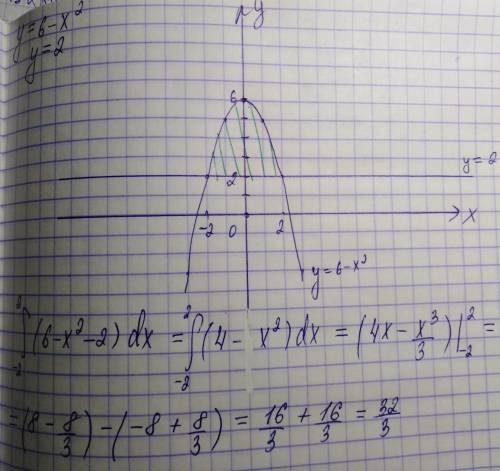 y=6-x²
y=2
y
6
y=2
2
-2 0 2 x
y=6-x²
∫₋₂² (6-x²-2) dx = ∫₋₂² (4-x²) dx = (4x - x³/3) |₋₂² =
= (8 - 8/3) - (-8 + 8/3) = 16/3 + 16/3 = 32/3